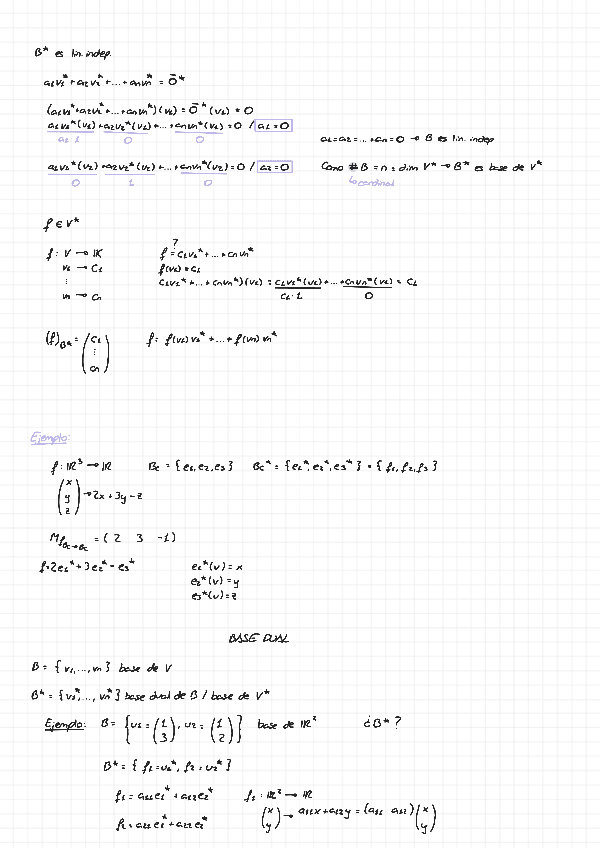 B* es lin. indep.
a₁v₁* + a₂v₂* + ... + aₙvₙ* = 0̄*
(a₁v₁* + a₂v₂* + ... + aₙvₙ*)(v₁) = 0̄*(v₁) = 0
a₁v₁*(v₁) + a₂v₂*(v₁) + ... + aₙvₙ*(v₁) = 0 / a₁ = 0
a₁·1 0 0
a₁ = a₂ = ... = aₙ = 0 → B es lin. indep
a₁v₁*(v₂) + a₂v₂*(v₂) + ... + aₙvₙ*(v₂) = 0 / a₂ = 0
0 1 0
Como #B = n = dim V* → B* es base de V*
↳ cardinal
f ∈ V*
f: V → K
v₁ → c₁
⋮
vₙ → cₙ
?
f = c₁v₁* + ... + cₙvₙ*
f(v₁) = c₁
c₁v₁* + ... + cₙvₙ*)(v₁) = c₁v₁*(v₁) + ... + cₙvₙ*(v₁) = c₁
c₁·1 0
(f)B* = (c₁ ⋮ cₙ) f = f(v₁)v₁* + ... + f(vₙ)vₙ*
Ejemplo:
f: ℝ³ → ℝ Bc = {e₁, e₂, e₃} Bc* = {e₁*, e₂*, e₃*} = {f₁, f₂, f₃}
(x y z) → 2x + 3y - z
M_f Bc→Bc = (2 3 -1)
f = 2e₁* + 3e₂* - e₃* e₁*(v) = x
e₂*(v) = y
e₃*(v) = z
BASE DUAL
B = {v₁, ..., vₙ} base de V
B* = {v₁*, ..., vₙ*} base dual de B / base de V*
Ejemplo: B = {v₁ = (1 3), v₂ = (1 2)} base de ℝ² ¿B*?
B* = {f₁ = v₁*, f₂ = v₂*}
f₁ = a₁₁e₁* + a₁₂e₂* f₁: ℝ² → ℝ
(x y) → a₁₁x + a₁₂y = (a₁₁ a₁₂)(x y)
f₂ = a₂₁e₁* + a₂₂e₂*